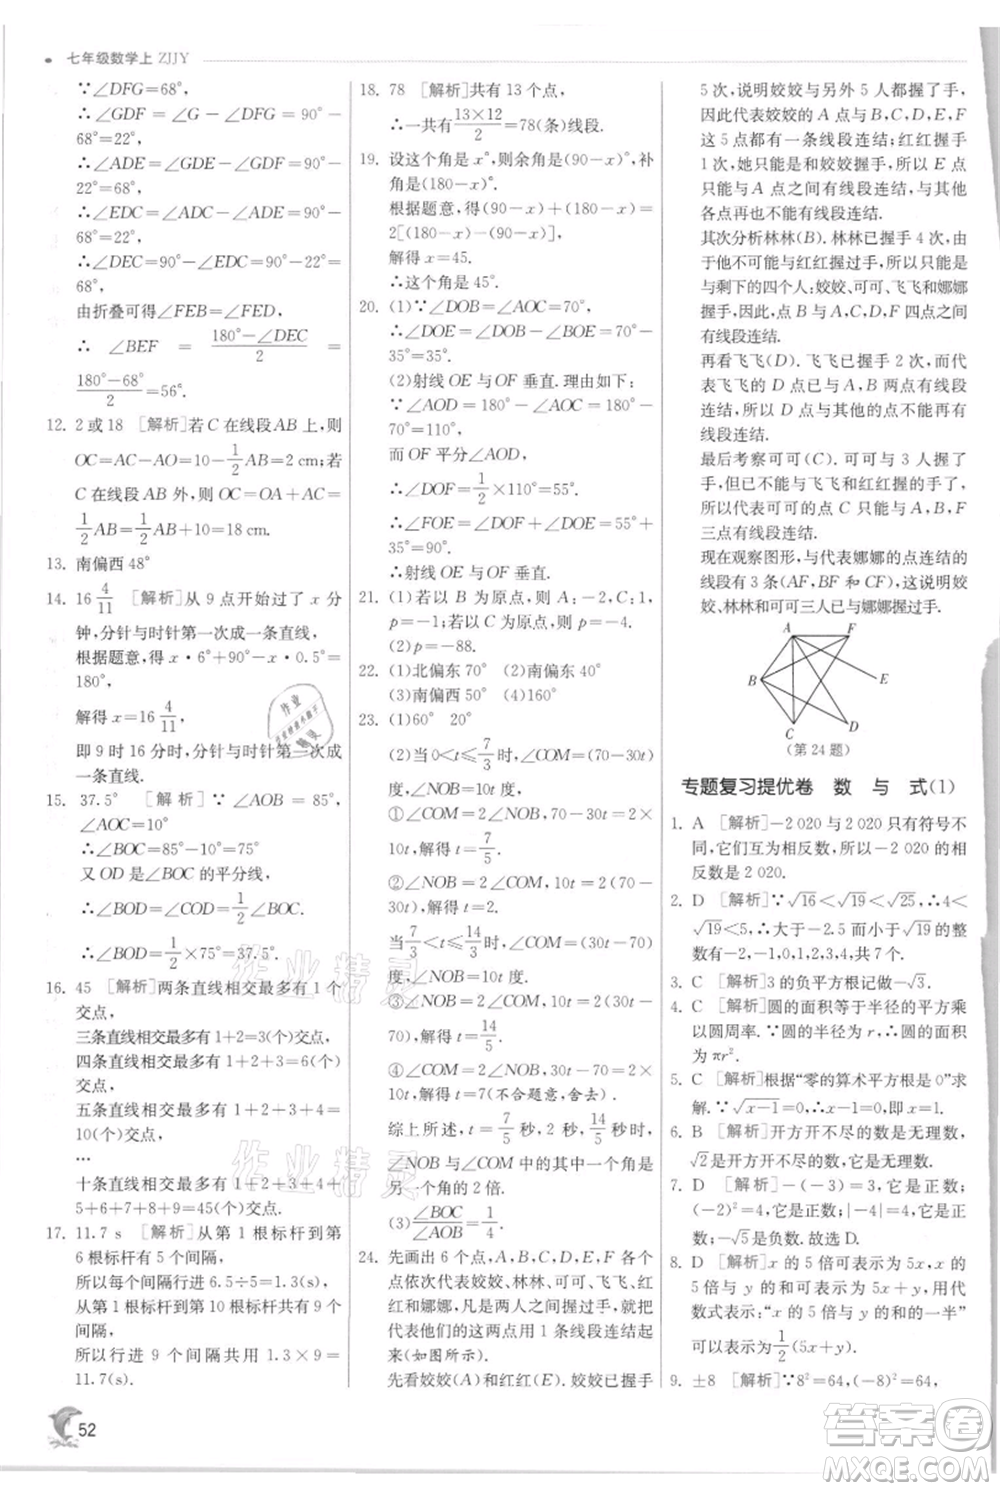 七年级数学上 ZJJY
∵∠DFG=68°,
∴∠GDF = ∠GFD = ∠GFD=90°-
68°=22°,
∴∠ADE=∠GDE-∠GDF=90°-
22°=68°,
∴∠EDC=∠ADC-∠ADE=90°-
68°=22°,
∴∠DEC=90°-∠EDC=90°-22°=
68°,
由折叠可得∠FEB=∠FED,
∴ ∠BEF = (180°-∠DEC)/2 =
(180°-68°)/2=56°.
12. 2或18 [解析]若C在线段AB上,则
OC=AC-AO=10-1/2AB=2 cm;若
C在线段AB外,则OC=OA+AC=
1/2AB=1/2AB+10=18 cm.
13. 南偏西48°
14. 16 4/11 [解析]从9点开始过了x分
钟,分针与时针第一次成一条直线,
根据题意,得x·6°+90°-x·0.5°=
180°,
解得x=16 4/11,
即9时16分时,分针与时针第一次成
一条直线.
15. 37.5° [解析]∵∠AOB=85°,
∠AOC=10°
∴∠BOC=85°-10°=75°
又OD是∠BOC的平分线
∴∠BOD=∠COD=1/2∠BOC
∴∠BOD=1/2×75°=37.5°.
16. 45 [解析]两条直线相交最多有1个
交点,
三条直线相交最多有1+2=3(个)交点,
四条直线相交最多有1+2+3=6(个)
交点,
五条直线相交最多有1+2+3+4=
10(个)交点,
…
十条直线相交最多有1+2+3+4+
5+6+7+8+9=45(个)交点.
17. 11.7 s [解析]从第1根标杆到第
6根标杆有5个间隔,
所以每个间隔行进6.5÷5=1.3(s),
从第1根标杆到第10根标杆共有9个
间隔,
所以行进9个间隔共用1.3×9=
11.7(s).
18. 78 [解析]共有13个点,
∴一共有(13×12)/2=78(条)线段.
19. 设这个角是x°,则余角是(90-x)°,补
角是(180-x)°.
根据题意,得(90-x)+(180-x)=
2[(180-x)-(90-x)],
解得x=45.
∴这个角是45°.
20. (1)∵∠DOB=∠AOC=70°,
∴∠DOE=∠DOB-∠BOE=70°-
35°=35°.
(2)射线OE与OF垂直.理由如下:
∵∠AOD=180°-∠AOC=180°-
70°=110°,
而OF平分∠AOD,
∴∠DOF=1/2×110°=55°.
∴∠FOE=∠DOF+∠DOE=55°+
35°=90°.
∴射线OE与OF垂直.
21. (1)若以B为原点,则A:-2,C:1,
p=-1;若以C为原点,p=-4.
(2)p=-88.
22. (1)北偏东70° (2)南偏东40°
(3)南偏西50° (4)160°
23. (1)60° 20°
(2)当0<t≤7/3时,∠COM=(70-30t)
度,∠NOB=10t度,
①∠COM=2∠NOB,70-30t=2×
10t,解得t=7/5;
②∠NOB=2∠COM,10t=2(70-
30t),解得t=2.
当7/3<t≤14/3时,∠COM=(30t-70)
度,∠NOB=10t度,
③∠NOB=2∠COM,10t=2(30t-
70),解得t=14/5;
④∠COM=2∠NOB,30t-70=2×
10t,解得t=7(不合题意,舍去).
综上所述,t=7/5或t=2或t=14/5时,
∠NOB与∠COM中的一个角是另一
个角的2倍.
(3)∠BOC/∠AOB=1/4
24. 先画出6个点,A,B,C,D,E,F,各个
点依次代表姣姣、林林、可可、飞飞、红红
和娜娜,凡是两个人之间握过手,就把
代表他们的这两点用1条线段连结起
来(如图所示).
先看姣姣(A)和红红(E),姣姣已握手
5次,这说明姣姣与另外5人都握了手,
因此代表姣姣的A点与B,C,D,E,F
这5点都有一条线段连结;红红握手
1次,她只能是和姣姣握手,所以E点
只与A点之间有线段连结,与其他
各点再也不能有线段连结.
其次分析林林(B).林林已握手4次,
由于他不可能与红红握过手,所以他
与剩下的四个人:姣姣、可可、飞飞和娜娜
握手,因此,B与A,C,D,F四点之间
有线段连结.
再看飞飞(D).飞飞已握手2次,而代
表飞飞的D点已与A,B两点有线段
连结,所以D点不可能再有
线段连结.
最后考察可可(C).可可与3人握了
手,但不可能是与飞飞和红红握的手了,
所以代表可可的C点与A,B,F
三点有线段连结.
现在观察图形,与代表娜娜的点连结的
线段有3条(AF,BF和CF),这说明姣
姣、林林和可可三人已与娜娜握过手.
A
F
B
E
C
D
(第24题)
专题复习提优卷 数与式(1)
1. A [解析]-2 020与2 020只有符号不
同,它们互为相反数,所以-2 020的相
反数是2 020.
2. D [解析]∵√16<√19<√25,∴4<
√19<5,∴大于-2.5而小于√19的整
数有-2,-1,0,1,2,3,4,共7个.
3. C [解析]3的负平方根记做-√3.
4. C [解析]圆的面积等于半径的平方乘
以圆周率.∵圆的半径为r,∴圆的面积
为πr².
5. C [解析]根据“零的算术平方根是0”求
解.∵√x-1=0,∴x-1=0,即x=1.
6. B [解析]开方开不尽的数是无理数,
√2是开方开不尽的数,故是无理数.
7. D [解析]-(-3)=3,它是正数;
(-3)²=9,它是正数;|-4|=4,它是正数;
-√5是负数.故选D.
8. D [解析]x的5倍可以表示为5x,x
的5倍与y的和可表示为5x+y,用代
数式表示:“x的5倍与y的和的一半”
可以表示为1/2(5x+y).
9. ±8 [解析]∵8²=64,(-8)²=64,
52
作业精灵
作业精灵
答案圈
MXQE.COM